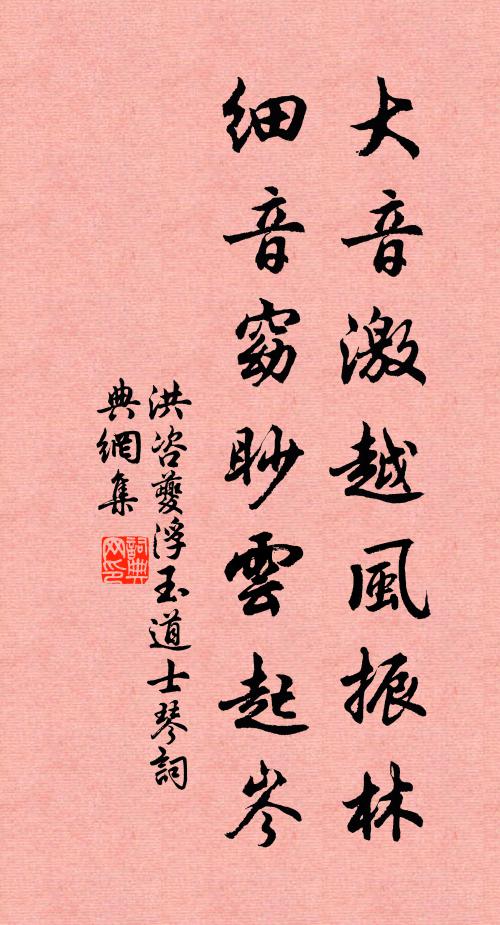 大音激越風振林
細音窈眇雲起岑
洪咨夔浮玉道士琴詞
典網集
詞典網印